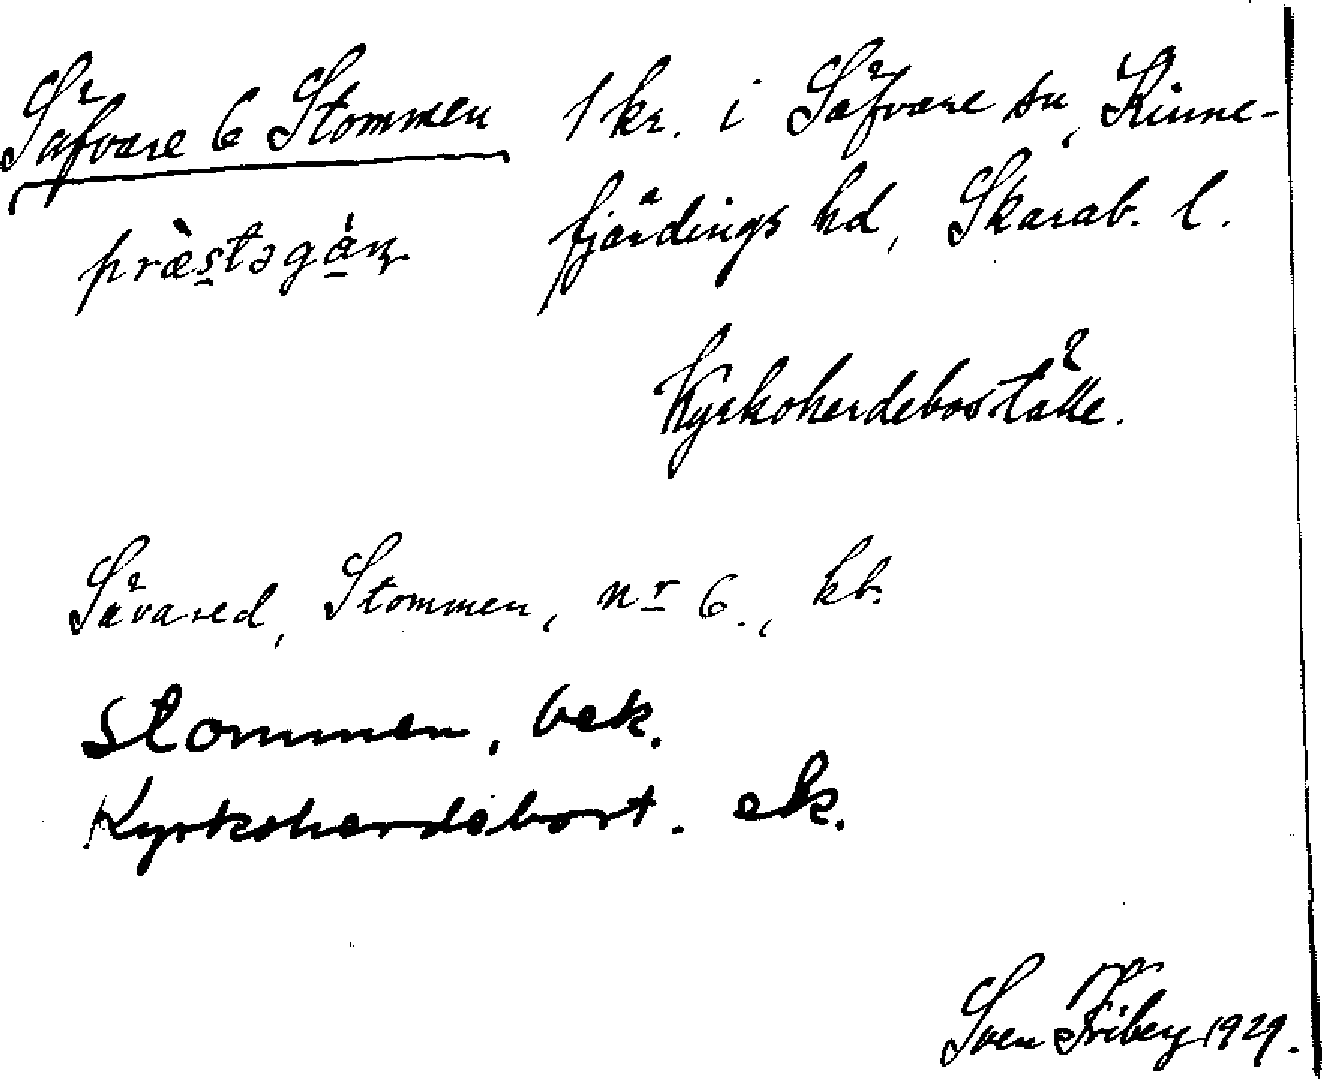 Såfvare 6 Stommen 1 kr. i Såfvare sn, Kinne-
præ̀stəgáṇ fjärdings hd, Skarab. l.
Kyrkoherdeboställe.
Såvared, Stommen, nr 6., kb.
Stommen, bek.
Kyrkoherdebost. ek.
Sven Friberg 1929.